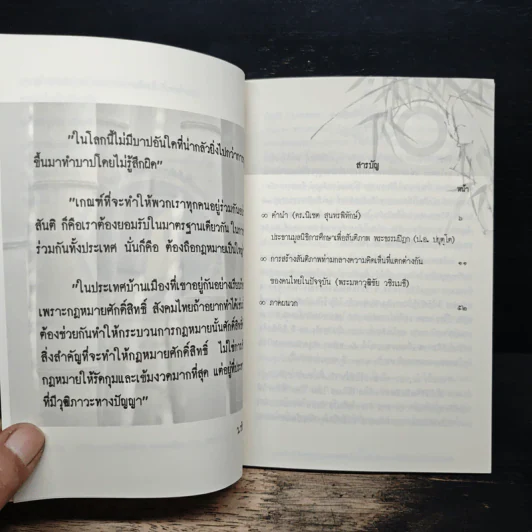 "ในโลกนี้ไม่มีบาปอันใดที่น่ากลัวยิ่งไปกว่าการ
ขึ้นมาทำบาปโดยไม่รู้สึกผิด"
"เกณฑ์ที่จะทำให้พวกเราทุกคนอยู่ร่วมกันอย่
สันติ ก็คือเราต้องยอมรับในมาตรฐานเดียวกัน
ร่วมกันทั้งประเทศ นั่นก็คือ ต้องถือกฎหมายเป็นใหญ่
"ในประเทศบ้านเมืองที่เขาอยู่กันอย่าง
เพราะกฎหมายศักดิ์สิทธิ์ สังคมไทยถ้าอยากทำได้
ต้องช่วยกันทำให้กระบวนการกฎหมายนั้นศักดิ์สิทธิ์
สิ่งสำคัญที่จะทำให้กฎหมายศักดิ์สิทธิ์ ไม่ใช่การ
กฎหมายให้รัดกุมและเข้มงวดมากที่สุด แต่อยู่ที่
ที่มีวุฒิภาวะทางปัญญา"
สารบัญ
หน้า
คำนำ (ดร.นิเชต สุนทรพิทักษ์) ๖
ประธานมูลนิธิการศึกษาเพื่อสันติภาพ พระธรรมปิฎก (ป.อ. ปยุตฺโต)
การสร้างสันติภาพท่ามกลางความคิดเห็นที่แตกต่างกัน ๑๑
ของคนไทยในปัจจุบัน (พระมหาวุฒิชัย วชิรเมธี)
ภาคผนวก ๕๒